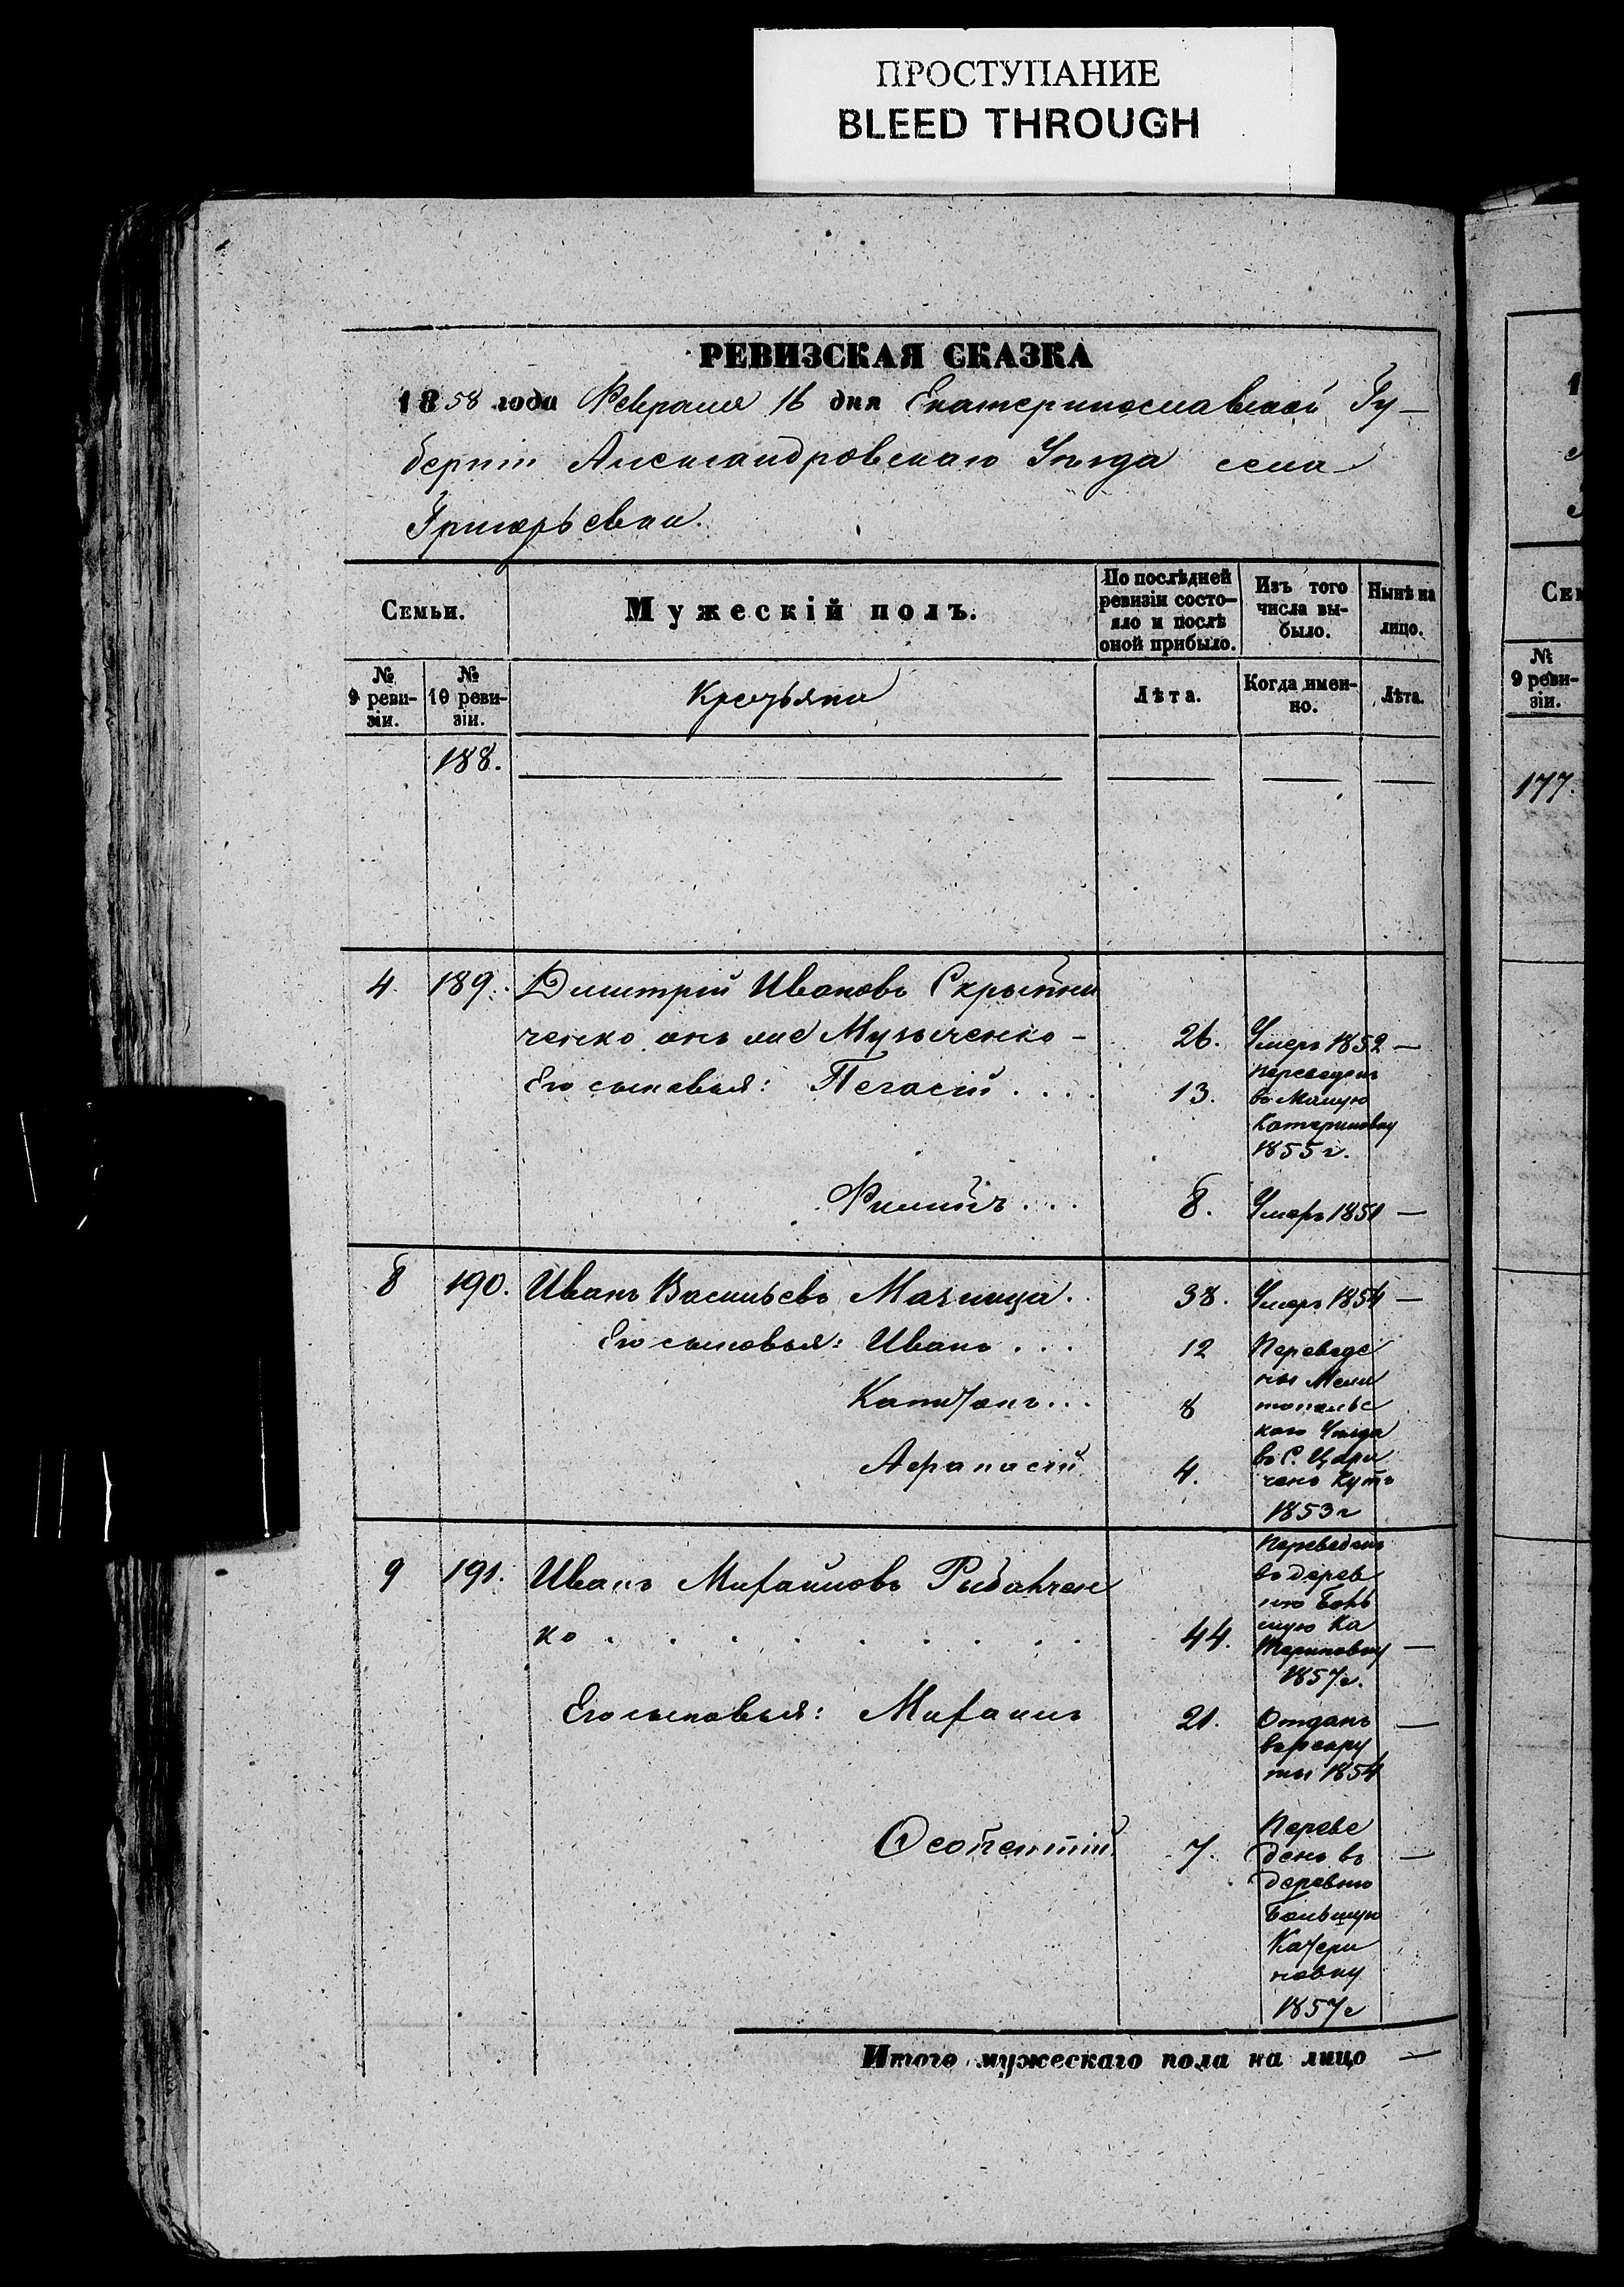 ПРОСТУПАНИЕ
BLEED THROUGH
РЕВИЗСКАЯ СКАЗКА
1858 года Февраля 16 дня Екатеринославской Гу-
берніи Александровскаго Уѣзда села
Григорьевки.
Семьи.
Мужескій полъ.
По послѣдней
ревизіи состо-
яло и послѣ
оной прибыло.
Изъ того
числа вы-
было.
Нынѣ на
лицо.
№
9 реви-
зіи.
№
10 реви-
зіи.
Лѣта.
Когда имен-
но.
Лѣта.
188.
4. 189. Дмитрій Ивановъ Скрыпни
ченко онъ же Музыченко - 26. Умеръ 1852 —
Его сыновья: 13. Переведенъ
въ Малую
Катериновку
1855 г.
Филипъ . . . 8. Умеръ 1851 —
8 190. Иванъ Васильевъ 38. Умеръ 1854 —
Его сыновья: Иванъ . . . 12 Переведе
ны Мели
Капитонъ . . . 8 топольс
каго Уѣзда
Афанасій 4. въ С. Цари
ченъ Кутъ
1853 г
9 191. Иванъ Михайловъ Рыбальчен
ко . . . . . . . . . 44. Переведенъ
въ дерев
ню Боль
шую Ка
териновку —
1857 г.
Его сыновья: Михаилъ 21. Отданъ —
въ рекру
ты 1854
7. Переве
денъ въ —
деревню
Большую
Катери
новку
1857 г
Итого мужескаго пола на лицо —
1
Сем
№
9 реви-
зіи.
177.